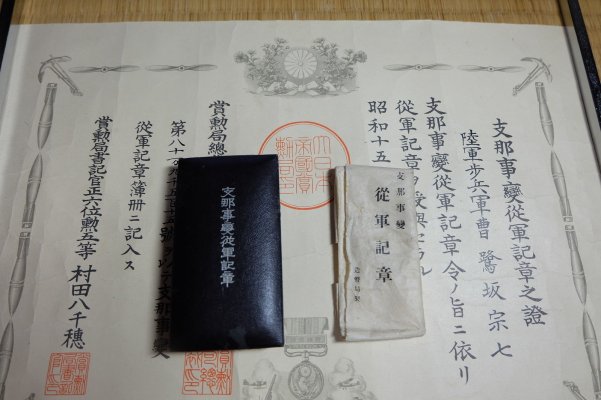 支那事變從軍記章之證
陸軍步兵軍曹 鷺坂宗七
支那事變從軍記章令ノ旨ニ依リ
從軍記章ヲ授與セラル
昭和十五
賞勲局總
第八十
號ヲ以テ支那事變
從軍記章簿冊ニ記入ス
賞勲局書記官正六位勲五等 村田八千穂
大日本
帝國賞
勲局印
支那事變從軍記章
支那事變
從軍記章
造幣局製